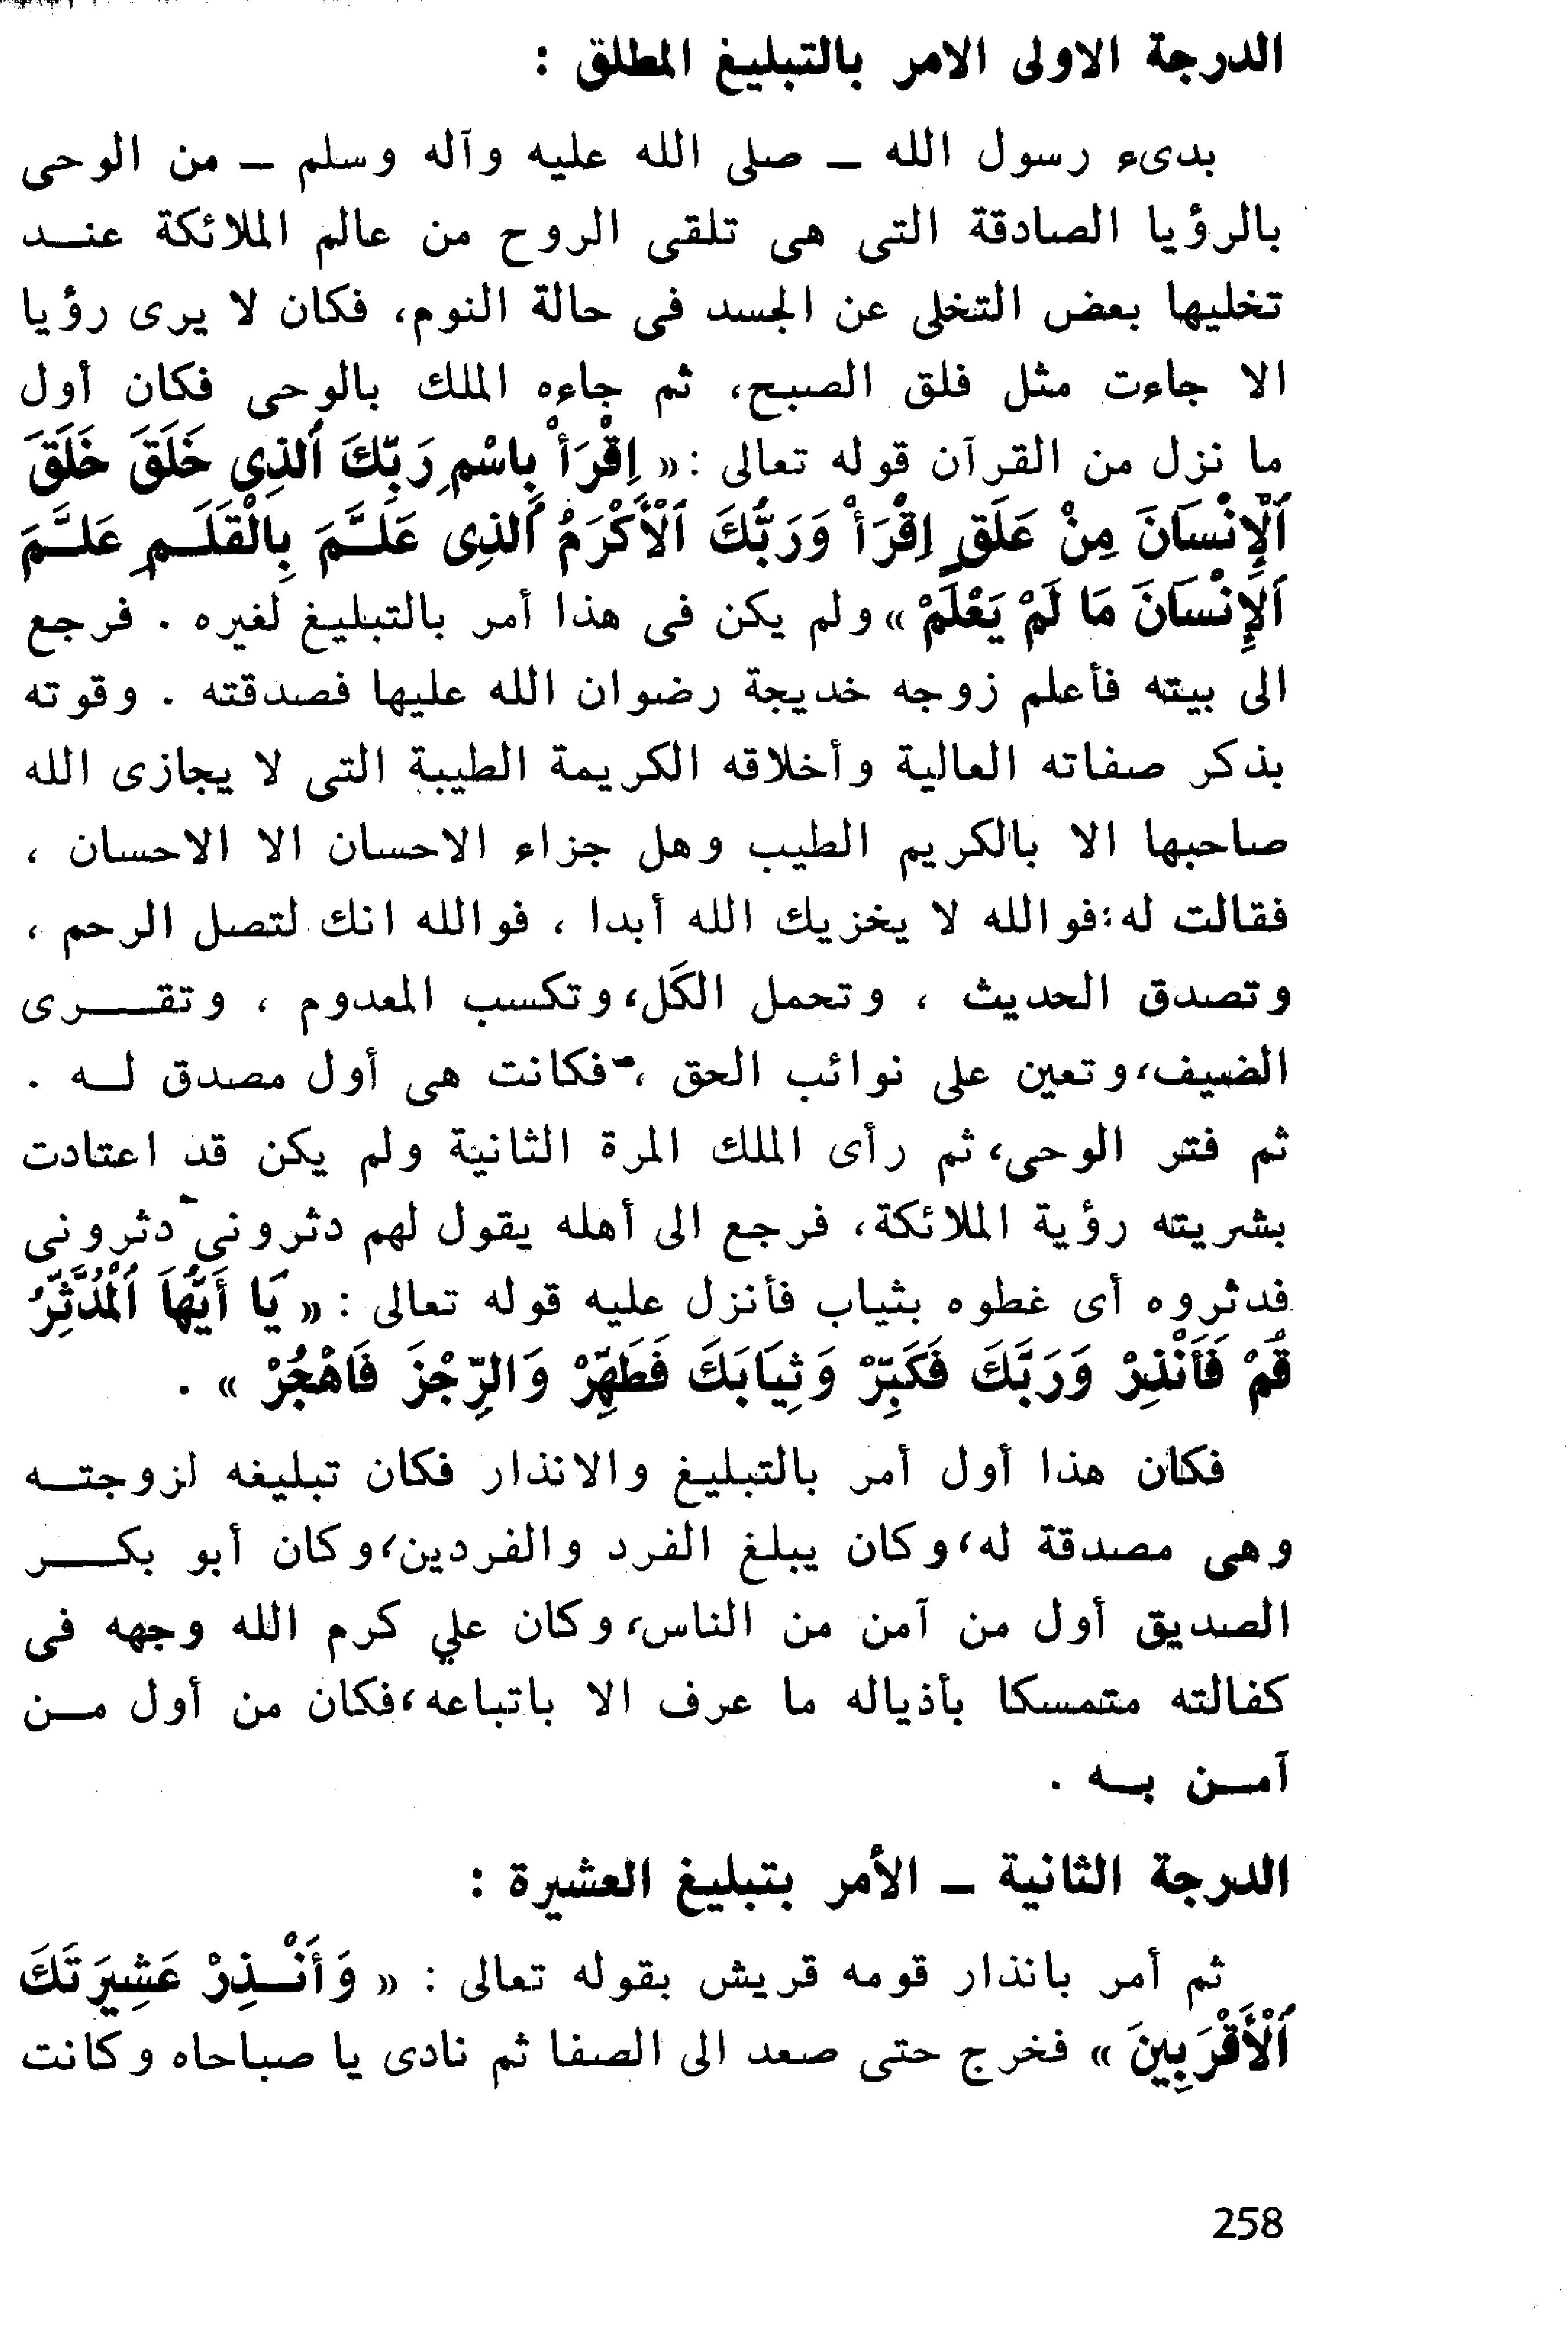 الدرجة الاولى الامر بالتبليغ المطلق :
بدىء رسول الله – صلى الله عليه وآله وسلم – من الوحى
بالرؤيا الصادقة التى هى تلقى الروح من عالم الملائكة عنــد
تخليها بعض التخلى عن الجسد فى حالة النوم، فكان لا يرى رؤيا
الا جاءت مثل فلق الصبح، ثم جاءه الملك بالوحى فكان أول
ما نزل من القرآن قوله تعالى : « اِقْرَأْ بِاسْمِ رَبِّكَ اَلذِى خَلَقَ خَلَقَ
اَلْإِنْسَانَ مِنْ عَلَقٍ اِقْرَأْ وَرَبُّكَ اَلْأَكْرَمُ اَلذِى عَلَّــمَ بِالْقَلَــمِ عَلــَّمَ
اَلإِنْسَانَ مَا لَمْ يَعْلَمْ » ولم يكن فى هذا أمر بالتبليغ لغيره . فرجع
الى بيته فأعلم زوجه خديجة رضوان الله عليها فصدقته . وقوته
بذكر صفاته العالية وأخلاقه الكريمة الطيبة التى لا يجازى الله
صاحبها الا بالكريم الطيب وهل جزاء الاحسان الا الاحسان ،
فقالت له : فوالله لا يخزيك الله أبدا ، فوالله انك لتصل الرحم ،
وتصدق الحديث ، وتحمل الكَل، وتكسب المعدوم ، وتقــــرى
الضيف، وتعين على نوائب الحق ، فكانت هى أول مصدق لــه .
ثم فتر الوحى، ثم رأى الملك المرة الثانية ولم يكن قد اعتادت
بشريته رؤية الملائكة، فرجع الى أهله يقول لهم دثرونى دثرونى
فدثروه أى غطوه بثياب فأنزل عليه قوله تعالى : « يَا أَيُّهَا اَلْمُدَّثِّرُ
قُمْ فَأَنْذِرْ وَرَبَّكَ فَكَبِّرْ وَثِيَابَكَ فَطَهِّرْ وَالرِّجْزَ فَاهْجُرْ » .
فكان هذا أول أمر بالتبليغ والانذار فكان تبليغه لزوجتــه
وهى مصدقة له، وكان يبلغ الفرد والفردين، وكان أبو بكــــر
الصديق أول من آمن من الناس، وكان علي كرم الله وجهه فى
كفالته متمسكا بأذياله ما عرف الا باتباعه، فكان من أول مــن
آمــن بــه .
الدرجة الثانية – الأمر بتبليغ العشيرة :
ثم أمر بانذار قومه قريش بقوله تعالى : « وَأَنْــذِرْ عَشِيرَتَكَ
اَلْأَقْرَبِينَ » فخرج حتى صعد الى الصفا ثم نادى يا صباحاه وكانت
258